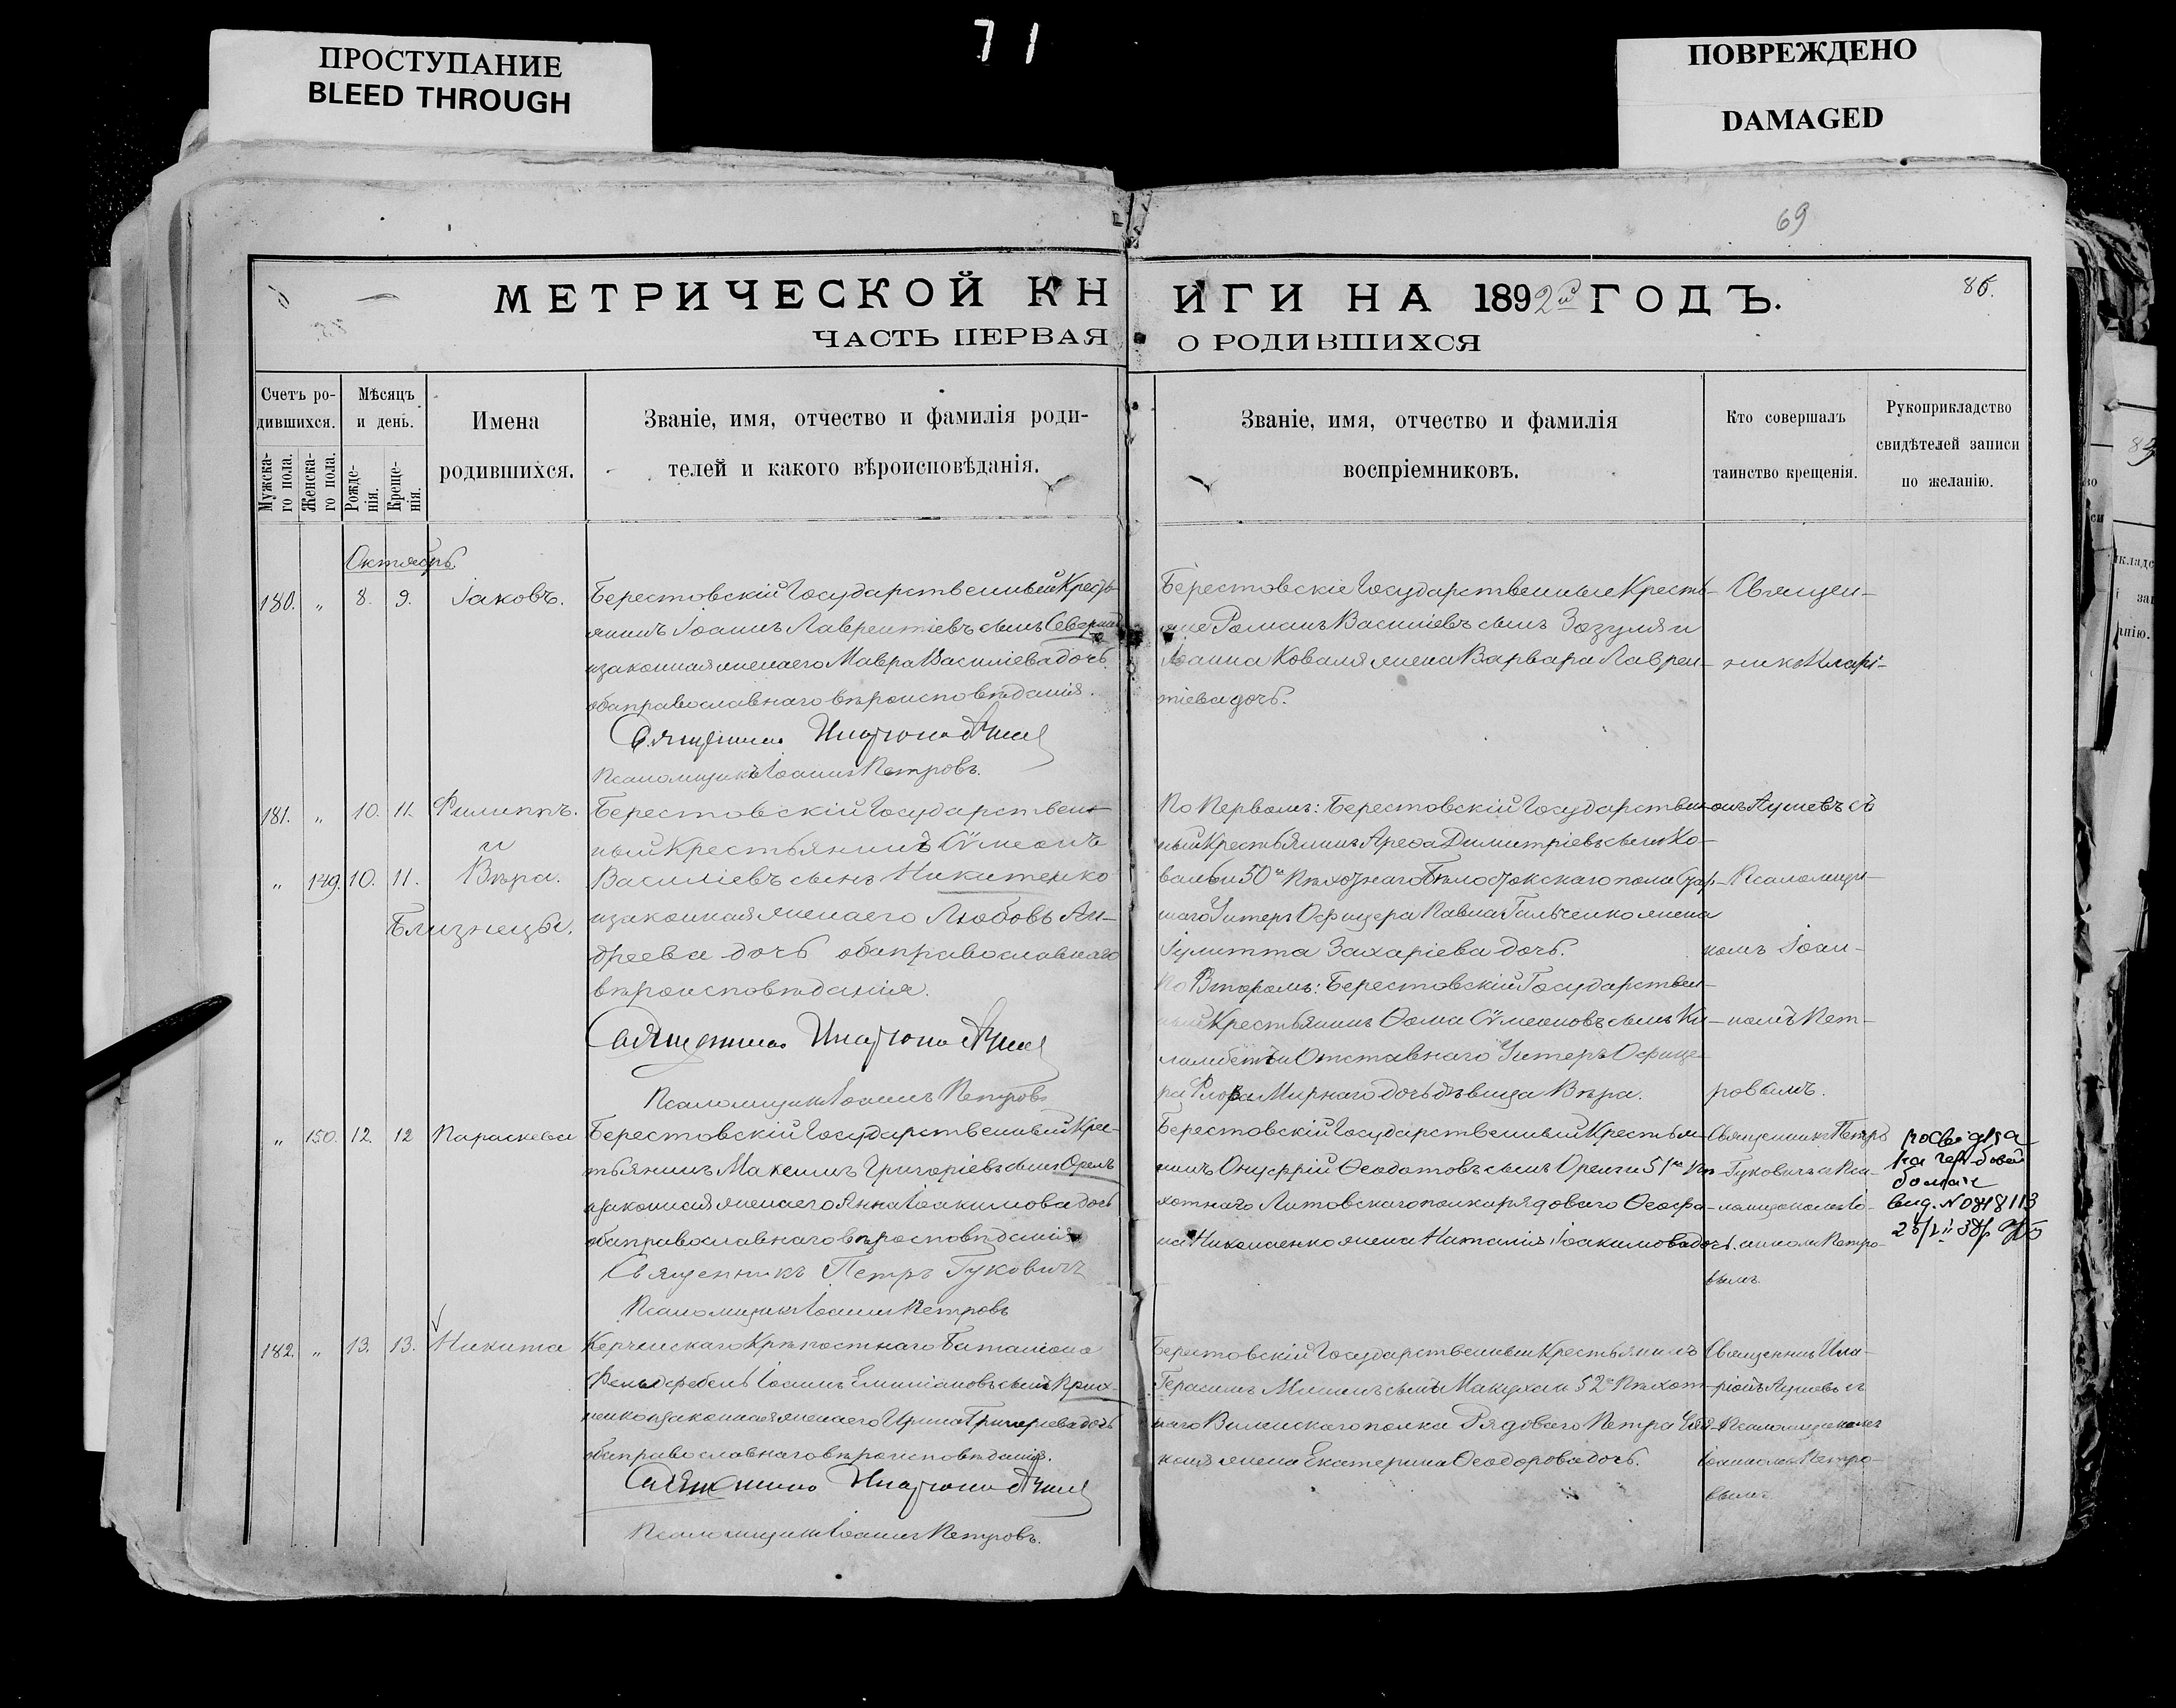 71
ПРОСТУПАНИЕ
BLEED THROUGH
ПОВРЕЖДЕНО
DAMAGED
69
МЕТРИЧЕСКОЙ КНИГИ НА 1892й ГОДЪ.
86.
ЧАСТЬ ПЕРВАЯ О РОДИВШИХСЯ
Счетъ ро-
дившихся.
Мужска-
го пола.
Женска-
го пола.
Мѣсяцъ
и день.
Рожде-
нія.
Креще-
нія.
Имена
родившихся.
Званіе, имя, отчество и фамилія роди-
телей и какого вѣроисповѣданія.
Званіе, имя, отчество и фамилія
воспріемниковъ.
Кто совершалъ
таинство крещенія.
Рукоприкладство
свидѣтелей записи
по желанію.
Октябрь
180. „ 8. 9. Іаковъ.
Берестовскій Государственный Кресть-
янинъ Іоаннъ Лаврентіевъ сынъ
и законная жена его Мавра Василіева дочь
оба православнаго вѣроисповѣданія.
Священникъ
Псаломщикъ Іоаннъ Петровъ.
Берестовскіе Государственные Кресть-
яне Романъ Василіевъ сынъ Зозуля и
Іоанна Коваля жена Варвара Лаврен-
тіева дочь.
Священ-
никъ Иларі-
181. „ 10. 11. Филиппъ.
и
„ 149. 10. 11. Вѣра.
Близнецы.
Берестовскій Государствен-
ный Крестьянинъ Сѵмеонъ
Василіевъ сынъ Никитенко
и законная жена его Любовь Ан-
дреева дочь оба православнаго
вѣроисповѣданія.
Священникъ
Псаломщикъ Іоаннъ Петровъ
По Первомъ: Берестовскій Государствен-
ный Крестьянинъ Ареѳа Димитріевъ сынъ Ко-
валь и 50го Пѣхотнаго Бѣлостокскаго полка Стар-
шаго Унтеръ Офицера Павла Гальченко жена
Іулитта Захаріева дочь.
По Второмъ: Берестовскій Государствен-
ный Крестьянинъ Ѳома Сѵмеоновъ сынъ Ки-
и Отставнаго Унтеръ Офице-
ра Флора Мирнаго дочь дѣвица Вѣра.
онъ Ауневъ съ
Псаломщи-
комъ Іоан-
номъ Пет-
ровымъ.
„ 150. 12. 12 Параскева
Берестовскій Государственный Крес-
тьянинъ Максимъ Григоріевъ сынъ Орелъ
и законная жена его Анна Іоакимова дочь
оба православнаго вѣроисповѣданія
Священникъ Петръ Гуковичъ
Псаломщикъ Іоаннъ Петровъ
Берестовскій Государственный Крестья-
нинъ Онуфрій Ѳеодотовъ сынъ Орелъ и 51го Пѣ-
хотнаго Литовскаго полка рядоваго Ѳеофа-
на Николаенко жена Наталія Іоакимова дочь.
Священникъ Петръ
Гуковичъ съ Пса-
ломщикомъ Іо-
анномъ Петро-
вымъ
вид. № 0848113
182. „ 13. 13. Никита
Керченскаго Крѣпостнаго Баталіона
Фельдфебель Іоаннъ Емиліановъ сынъ
и законная жена его Ирина Григоріева дочь
оба православнаго вѣроисповѣданія.
Священникъ
Псаломщикъ Іоаннъ Петровъ.
Берестовскій Государственный Крестьянинъ
Герасимъ Мининъ сынъ Макуха и 52го Пѣхот-
наго Виленскаго полка Рядоваго Петра
жена Екатерина Ѳеодорова дочь.
Священникъ Ила-
ріонъ Ауневъ съ
Псаломщикомъ
Іоанномъ Петро-
вымъ